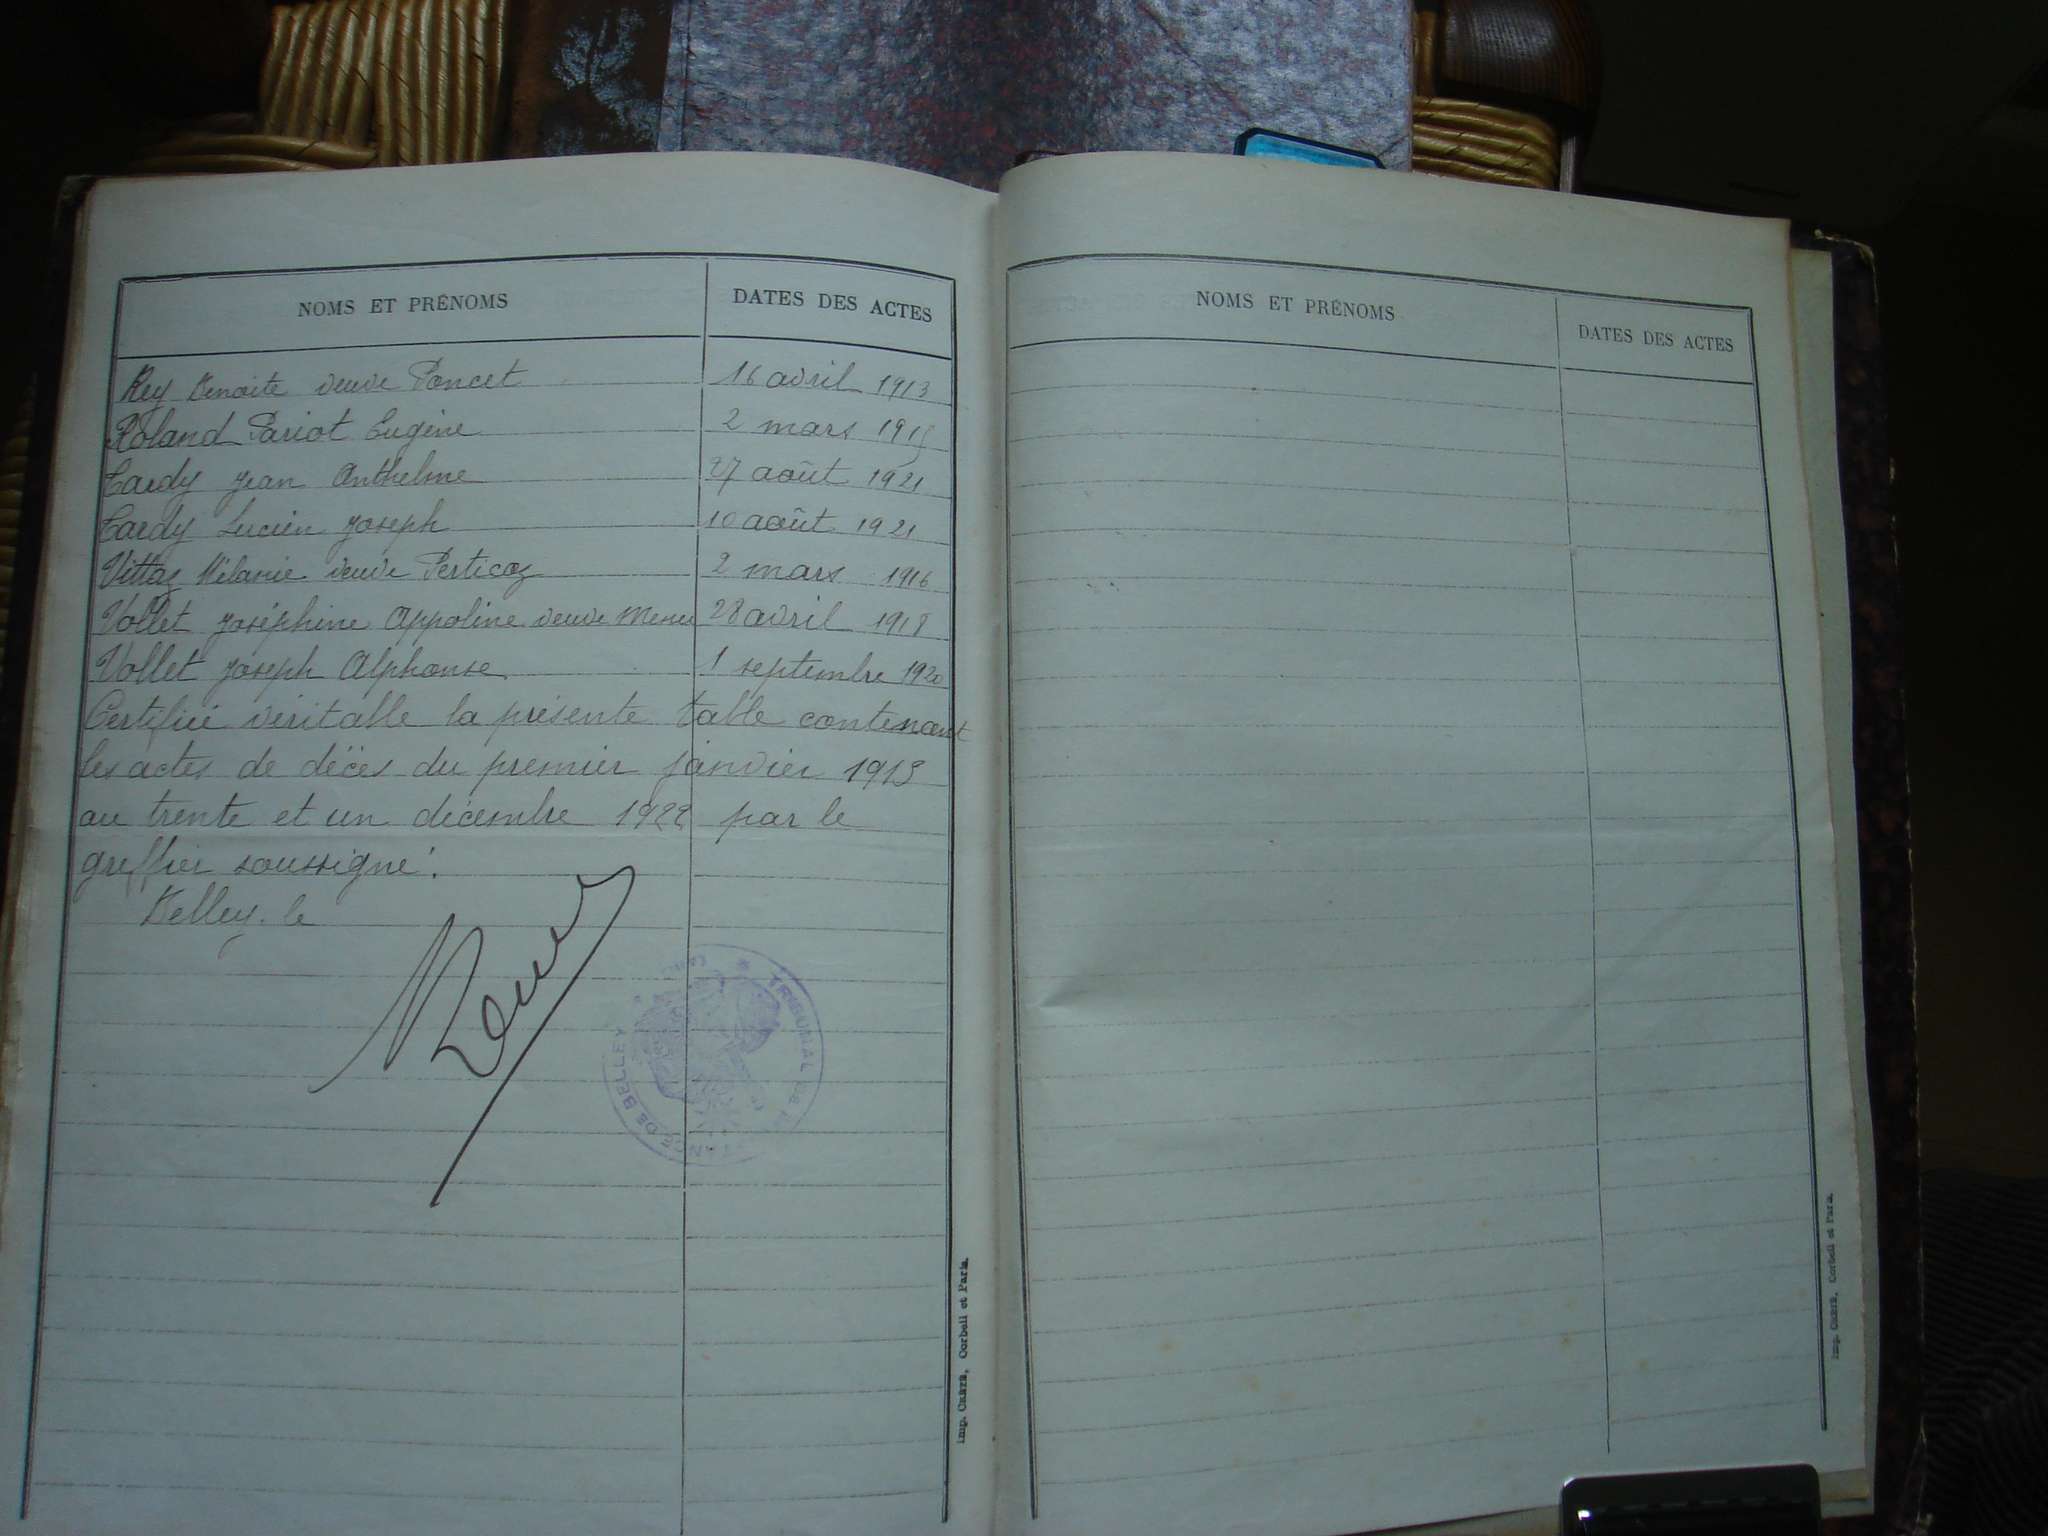 NOMS ET PRÉNOMS DATES DES ACTES
Rey Benoite veuve Poncet 16 avril 1913
Roland Pariot Eugène 2 mars 1915
Tardy Jean Anthelme 27 août 1921
Tardy Lucien Joseph 10 août 1921
Vittoz Mélanie veuve Perticoz 2 mars 1916
Vollet Joséphine Appoline veuve 28 avril 1918
Vollet Joseph Alphonse 1 septembre 1920
Certifié véritable la présente table contenant
les actes de décès du premier janvier 1913
au trente et un décembre 1922 par le
greffier soussigné:
Belley. le
TRIBUNAL
DE BELLEY
Imp. CRÉTÉ, Corbeil et Paris.
NOMS ET PRÉNOMS DATES DES ACTES
Imp. CRÉTÉ, Corbeil et Paris.